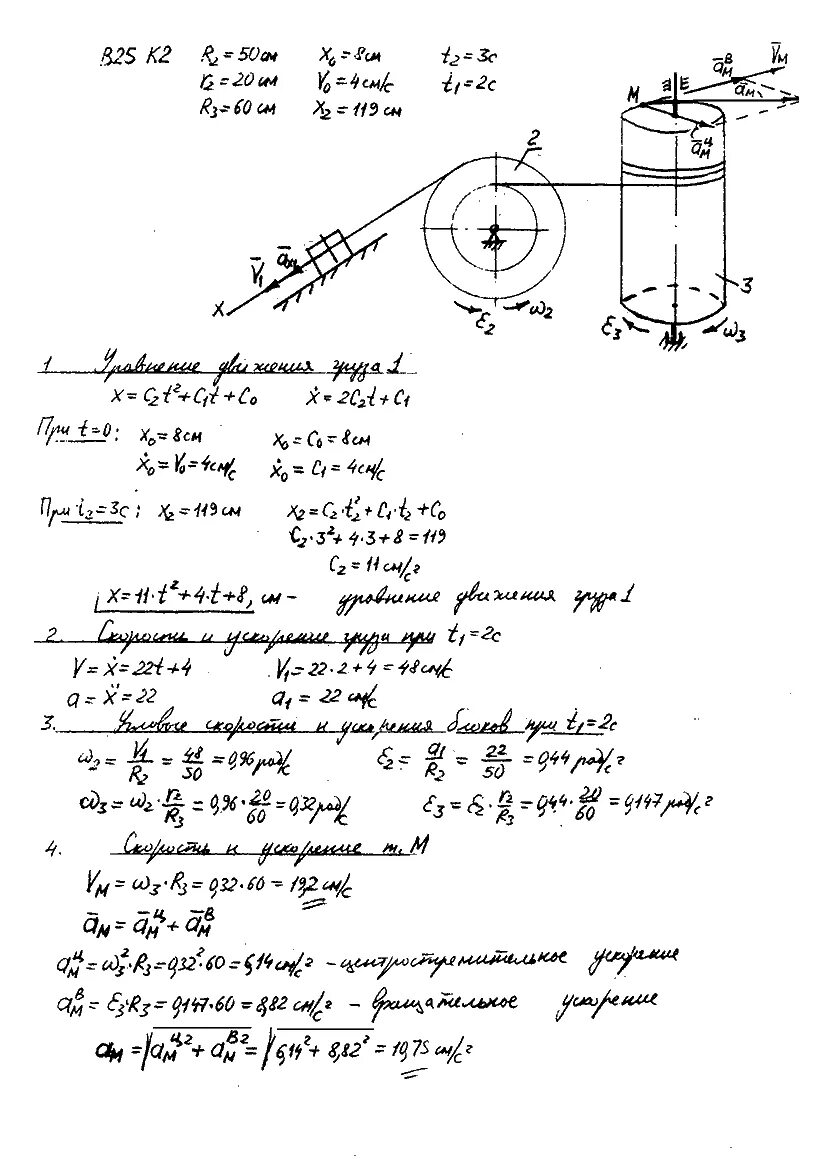 B25 K2 R₂=50см X₀=8см t₂=3с
r₂=20см V₀=4см/с t₁=2с
R₃=60см X₂=119см
ā_M^В V̄_M
ā_M
M
ā_M^ц
2
V̄₁
X
ε₂ ω₂
3
ε₃ ω₃
1 Уравнение движения груза 1
X=C₂t²+C₁t+C₀ ẋ=2C₂t+C₁
При t=0: X₀=8см X₀=C₀=8см
ẋ₀=V₀=4см/с ẋ₀=C₁=4см/с
При t₂=3с: X₂=119см X₂=C₂·t₂²+C₁·t₂+C₀
C₂·3²+4·3+8=119
C₂=11см/с²
X=11·t²+4·t+8, см – уравнение движения груза 1
2. Скорость и ускорение груза при t₁=2с
V=ẋ=22t+4 V₁=22·2+4=48см/с
a=ẍ=22 a₁=22см/с
3. Угловые скорости и ускорения блоков при t₁=2с
ω₂=V₁/R₂=48/50=0,96рад/с ε₂=a₁/R₂=22/50=0,44рад/с²
ω₃=ω₂·r₂/R₃=0,96·20/60=0,32рад/с ε₃=ε₂·r₂/R₃=0,44·20/60=0,147рад/с²
4. Скорость и ускорение т. М
V_M=ω₃·R₃=0,32·60=19,2см/с
ā_M=ā_M^ц+ā_M^В
a_M^ц=ω₃²·R₃=0,32²·60=6,14см/с² – центростремительное ускорение
a_M^В=ε₃·R₃=0,147·60=8,82см/с² – вращательное ускорение
a_M=√(a_M^ц²+a_M^В²)=√(6,14²+8,82²)=10,75см/с²